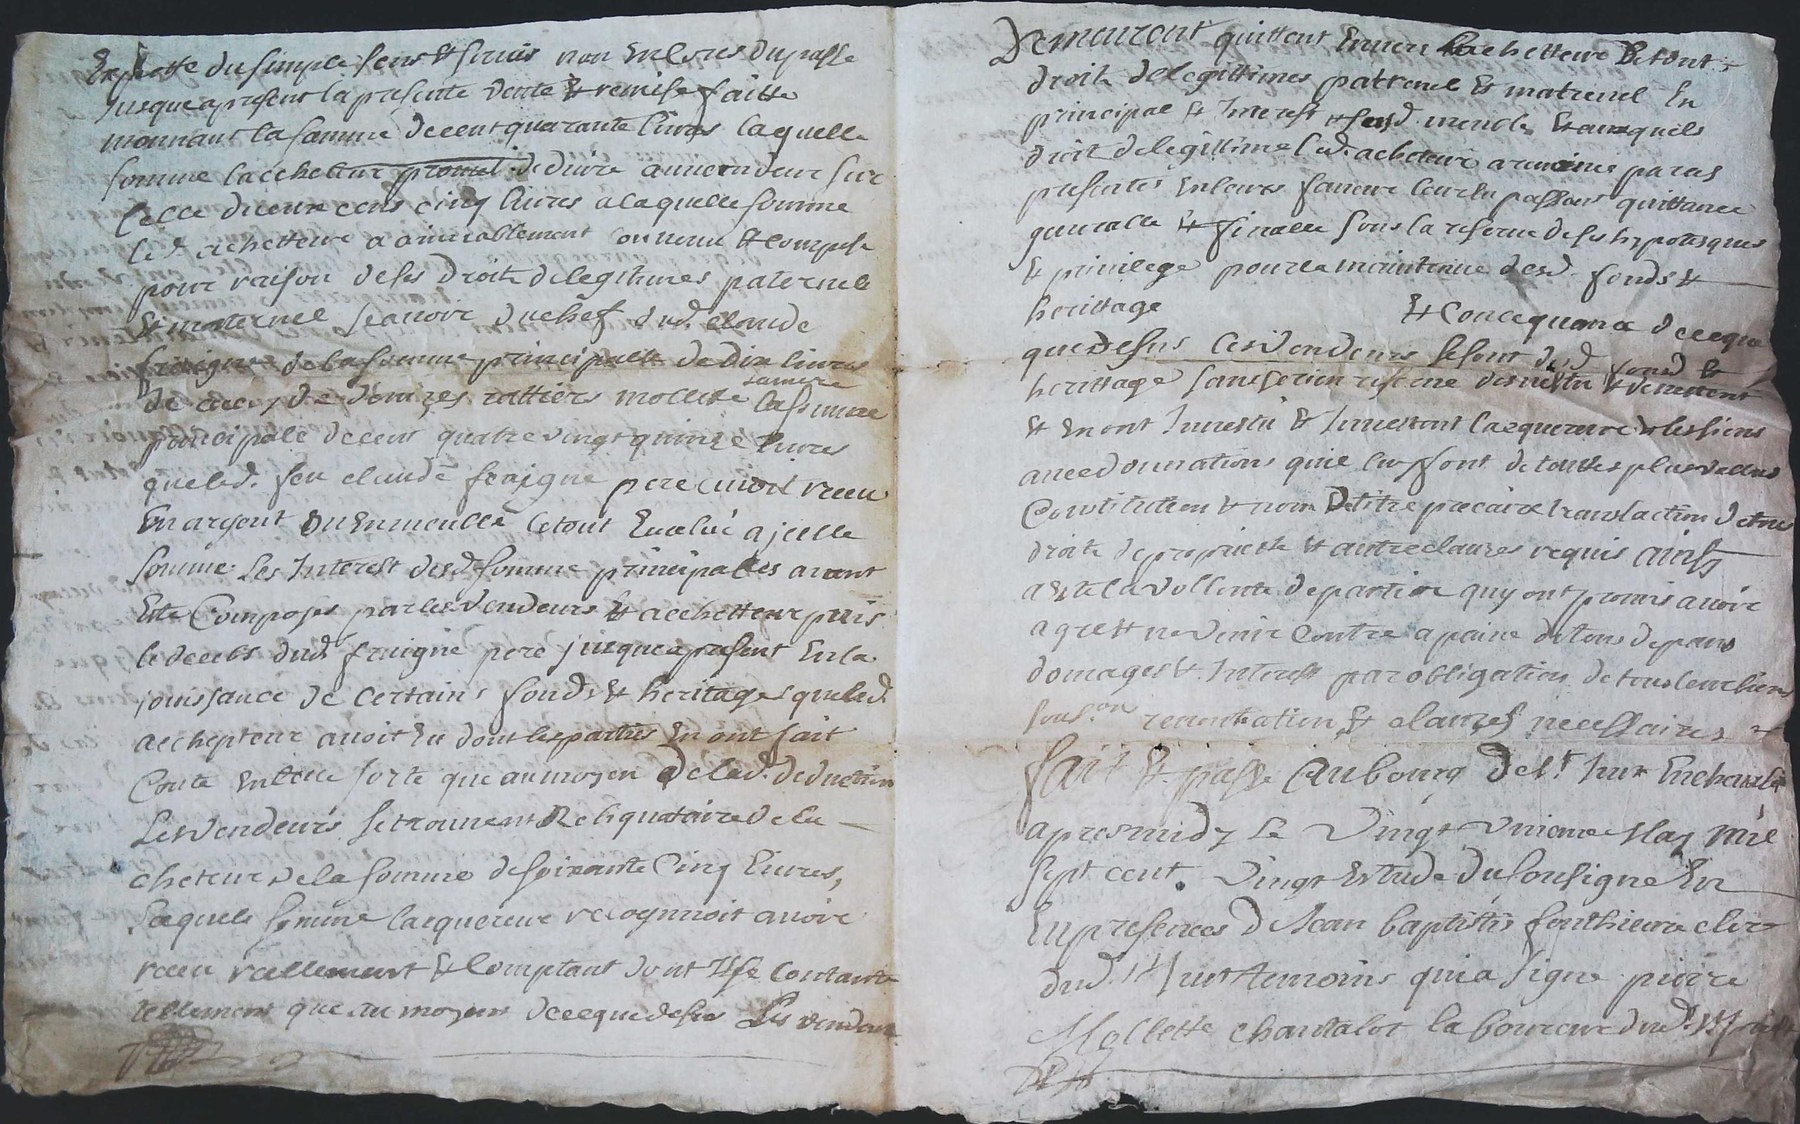 du simple sens & servis non En leves du passe
Jusque a present la presente vente & remise faitte
moenant la somme de cent quarante livres laquelle
somme lachetteur promet deduire au vendeur sur
Celle de cens cinq livres a laquelle somme
led. achetteur a aimiablement convenu & compose
pour raison de ses droit de legitimes paternel
& maternel scavoir du chef dud. claude
fraigne de la somme principalle de dix livres
de mollette la somme
principale de cent quatre vingt quinze livres
que led. feu claude fraigne pere avoit receu
En argent ou En meuble le tout Evalué a jcelle
somme Les Interest desd. somme principales avant
Esté Composes par les vendeurs & achetteur puis
le decebs dud. fraigne pere jusque a present En la
jouissance de certains fonds & heritages que led.
achepteur avoit Eu dont les parties En ont fait
Conte En telle sorte que au moyen de lad. deduction
Les vendeurs se trouvent Reliquataire de la
cheteur de la somme de soixante Cinq Livres,
Laquele somme lacquereur recognoit avoir
receu reellement & Comptant dont Il se Contante
tellement que au moyens de ce que desus Les vendeur
Demeuront quittent Envers lachetteur De tout
droits de legittimes paternel & maternel En
principal & Interest & meuble &
droit de legittime led. acheteur a renoncé par ces
presentes En leurs faveur leur En passant quittance
generalle & finalle sous la reserve de ses hypoteques
& privilege pour la maintenue desd. fonds &
heritage & Consequance de ce que
que Desus Les Vendeurs se sont desd. fond &
heritage sans se rien reserve & devettent
& En ont Investu & Investont lacquereur & les siens
avec donnations quil luy font de touttes plus vallus
Constitution & nom De titre precaire translaction de tous
droits de propriette & autre clauzes requis ainsy
a Esté la vollonte de partie quy ont promis avoir
agre & ne venir Contre a paine de tous depans
domages & Interest par obligation de tous leur biens
sous.on renontiation, & clauzes necessaires
fait & passe au bourg de St. hur
apres midy Le Vingt Unieme May Mil
sept cent. Vingt Estude du sousigne En
En presences de Jean baptiste fonthieure clerc
dud. St hur temoins qui a signe pierre
Mollette chantalot laboureur dud. St